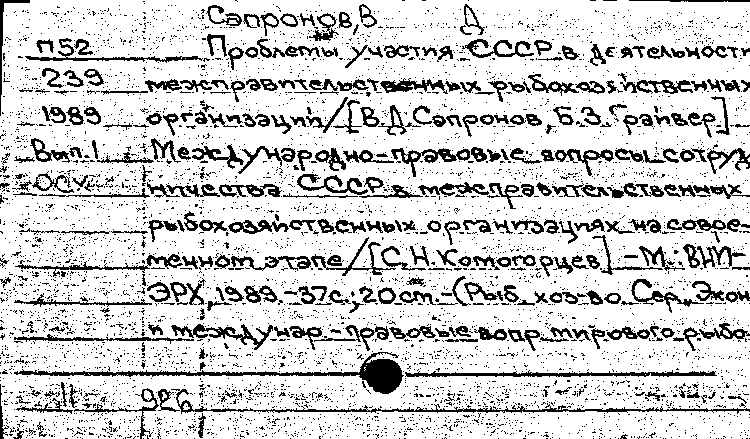 Сапронов, В Д
П52 Проблемы участия СССР в деятельности
239 межправительственных рыбохозяйственных
1989 организаций/[В.Д.Сапронов, Б.З.Грайвер]
Вып.1 Международно-правовые вопросы сотруд
ничества СССР в межправительственных
рыбохозяйственных организациях на совре-
менном этапе/[С.Н.Комогорцев] -М.:ВНИ-
ЭРХ, 1989.-37с.; 20ст.-(Рыб. хоз-во. Сер., Экон
и междунар.-правовые вопр. мирового рыбо-
11 926